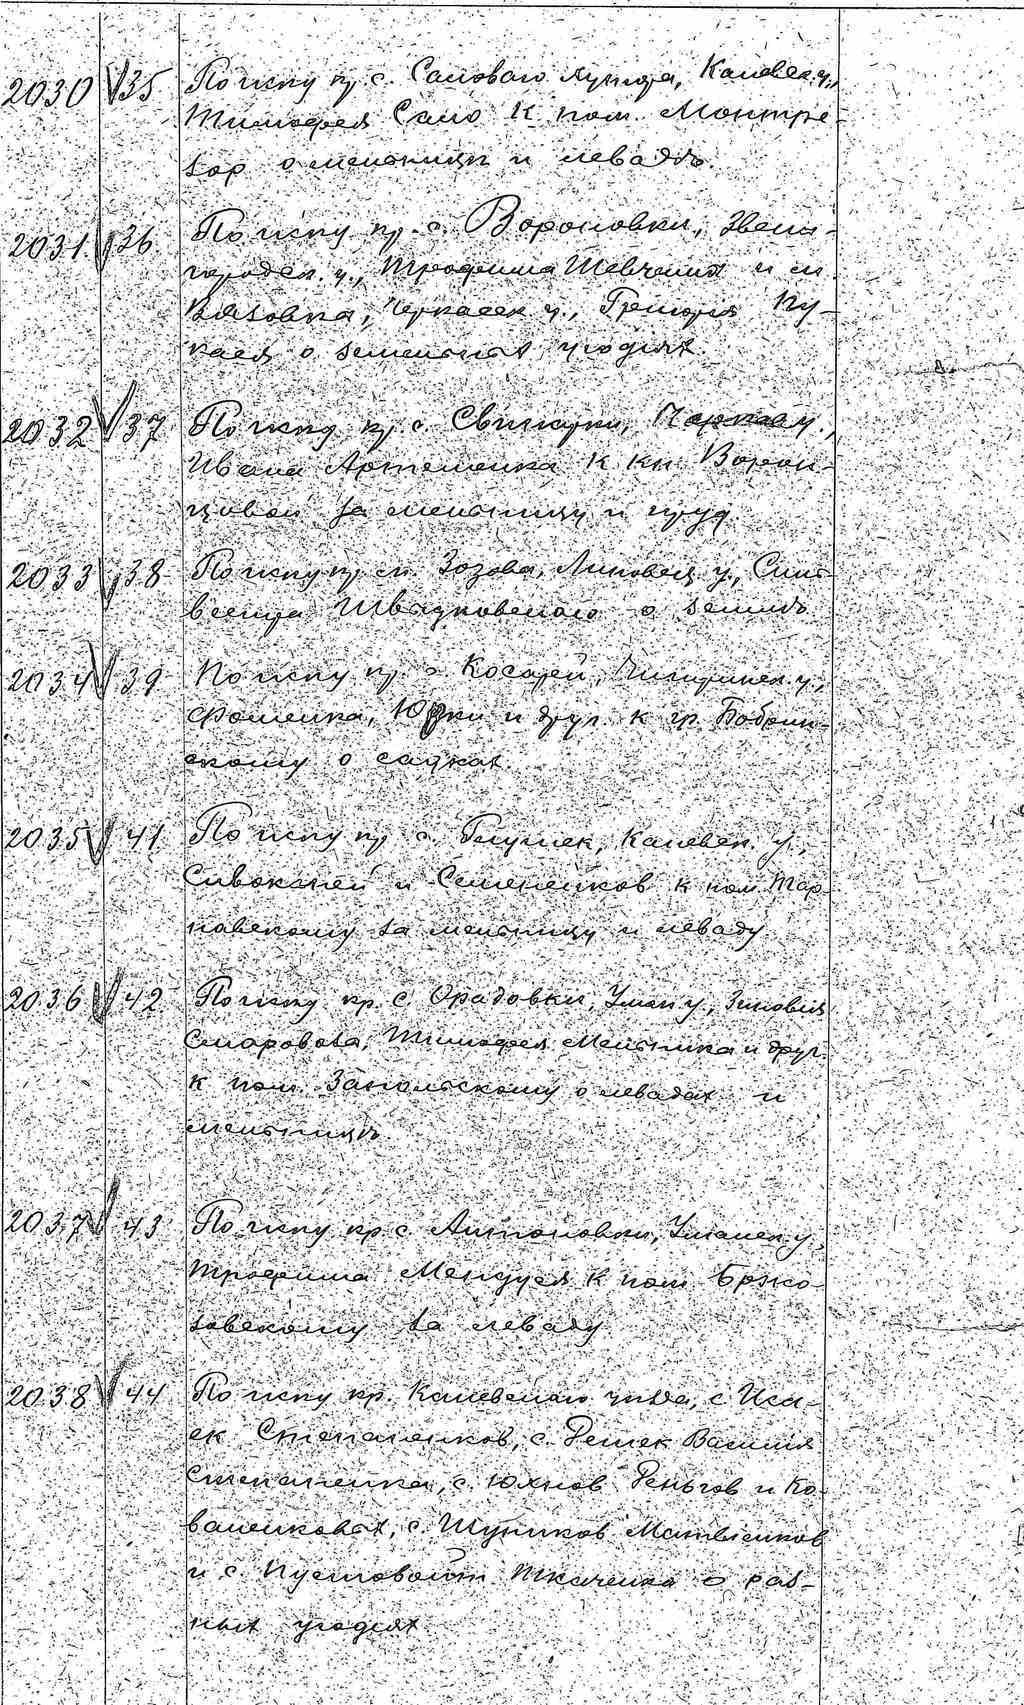 2030 35 По иску кр. с. Самоваго хутора, Каневск. у.,
Тимофея Само к пом. Монтре-
зор о мельницы и левадѣ.
2031 36 По иску кр. с. Вороновки, Звени-
городск. у., Трофима Шевченка и м.
Вязовка, Черкасск. у., Григория
о земельных угодіях.
2032 37 По иску кр. с. Свинарки,
Ивана Артеменка к кн. Ворон-
цовой за мельницу и пруд
2033 38 По иску кр. м. Зозова, Липовец. у., Силь-
вестра о землѣ
2034 39 По иску кр. с. Косарей, Чигиринск. у.,
Фоменка, Юрки и друг. к гр. Бобрин-
скому о садках.
2035 41 По иску кр. с. Глушек, Каневск. у.,
и Семененков к пом. Тар-
навскому за мельницу и леваду
2036 42 По иску кр. с. Орадовки, Уман. у., Зиновія
Тимофея Мельника и друг.
к пом. Запольскому о левадах и
мельницѣ
2037 43 По иску кр. с. Антоновки, Уманск. у.,
Трофима к пом. Бржо-
зовскому за леваду
2038 44 По иску кр. Каневскаго уѣзда, с.
Степаненков, с. Василія
Степаненка, с. Юхнов и Ко-
валенковых, с. Матвіенков
и с. Пустовойт Ткаченка о раз-
ных угодіях